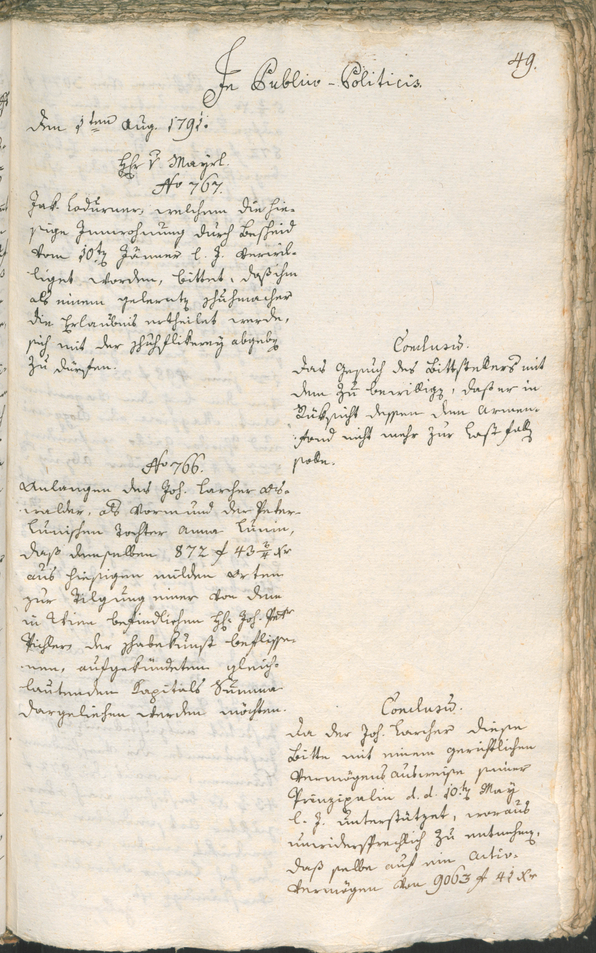 49.
In Publico-Politicis.
den 1ten Aug. 1791.
Hr v Mayrl.
No 767.
Jak. Ladurner, welchem die hie-
sige Innwohnung durch Bescheid
vom 10ten Jänner l. J. verwil-
liget worden, bittet, daß ihm
als einem gelernten Schuhmacher
die Erlaubnis ertheilet werde,
sich mit der Schuhflikerey abgeben
zu dürfen.
Conclusum.
Das Gesuch des Bittstellers mit
dem zu bewilligen, daß er in
Rüksicht dessen dem Armen-
fond nicht mehr zur Last fallen
solle.
No 766.
Anlangen des Joh. Larcher
walder, als Vormund der Peter
Lunischen Tochter Anna Lunin,
daß demselben 872 f 43 3/4 xr
aus hiesigen milden Orten
zur Tilgung eines von dem
in Wien befindlichen H. Joh. Petr
Pichler der Schabekunst beflisse-
nen, aufgekündeten gleich-
lautenden Kapitals Summa
dargeliehen werden möchten.
Conclusum.
Da der Joh. Larcher diese
Bitte mit einem gerichtlichen
Vermögens Ausweise seiner
Prinzipalin d. d. 10ten May
l. J. unterstützet, woraus
unwidersprechlich zu entnehmen,
daß selbe auf ein Activ-
Vermögen von 9063 f 41 xr